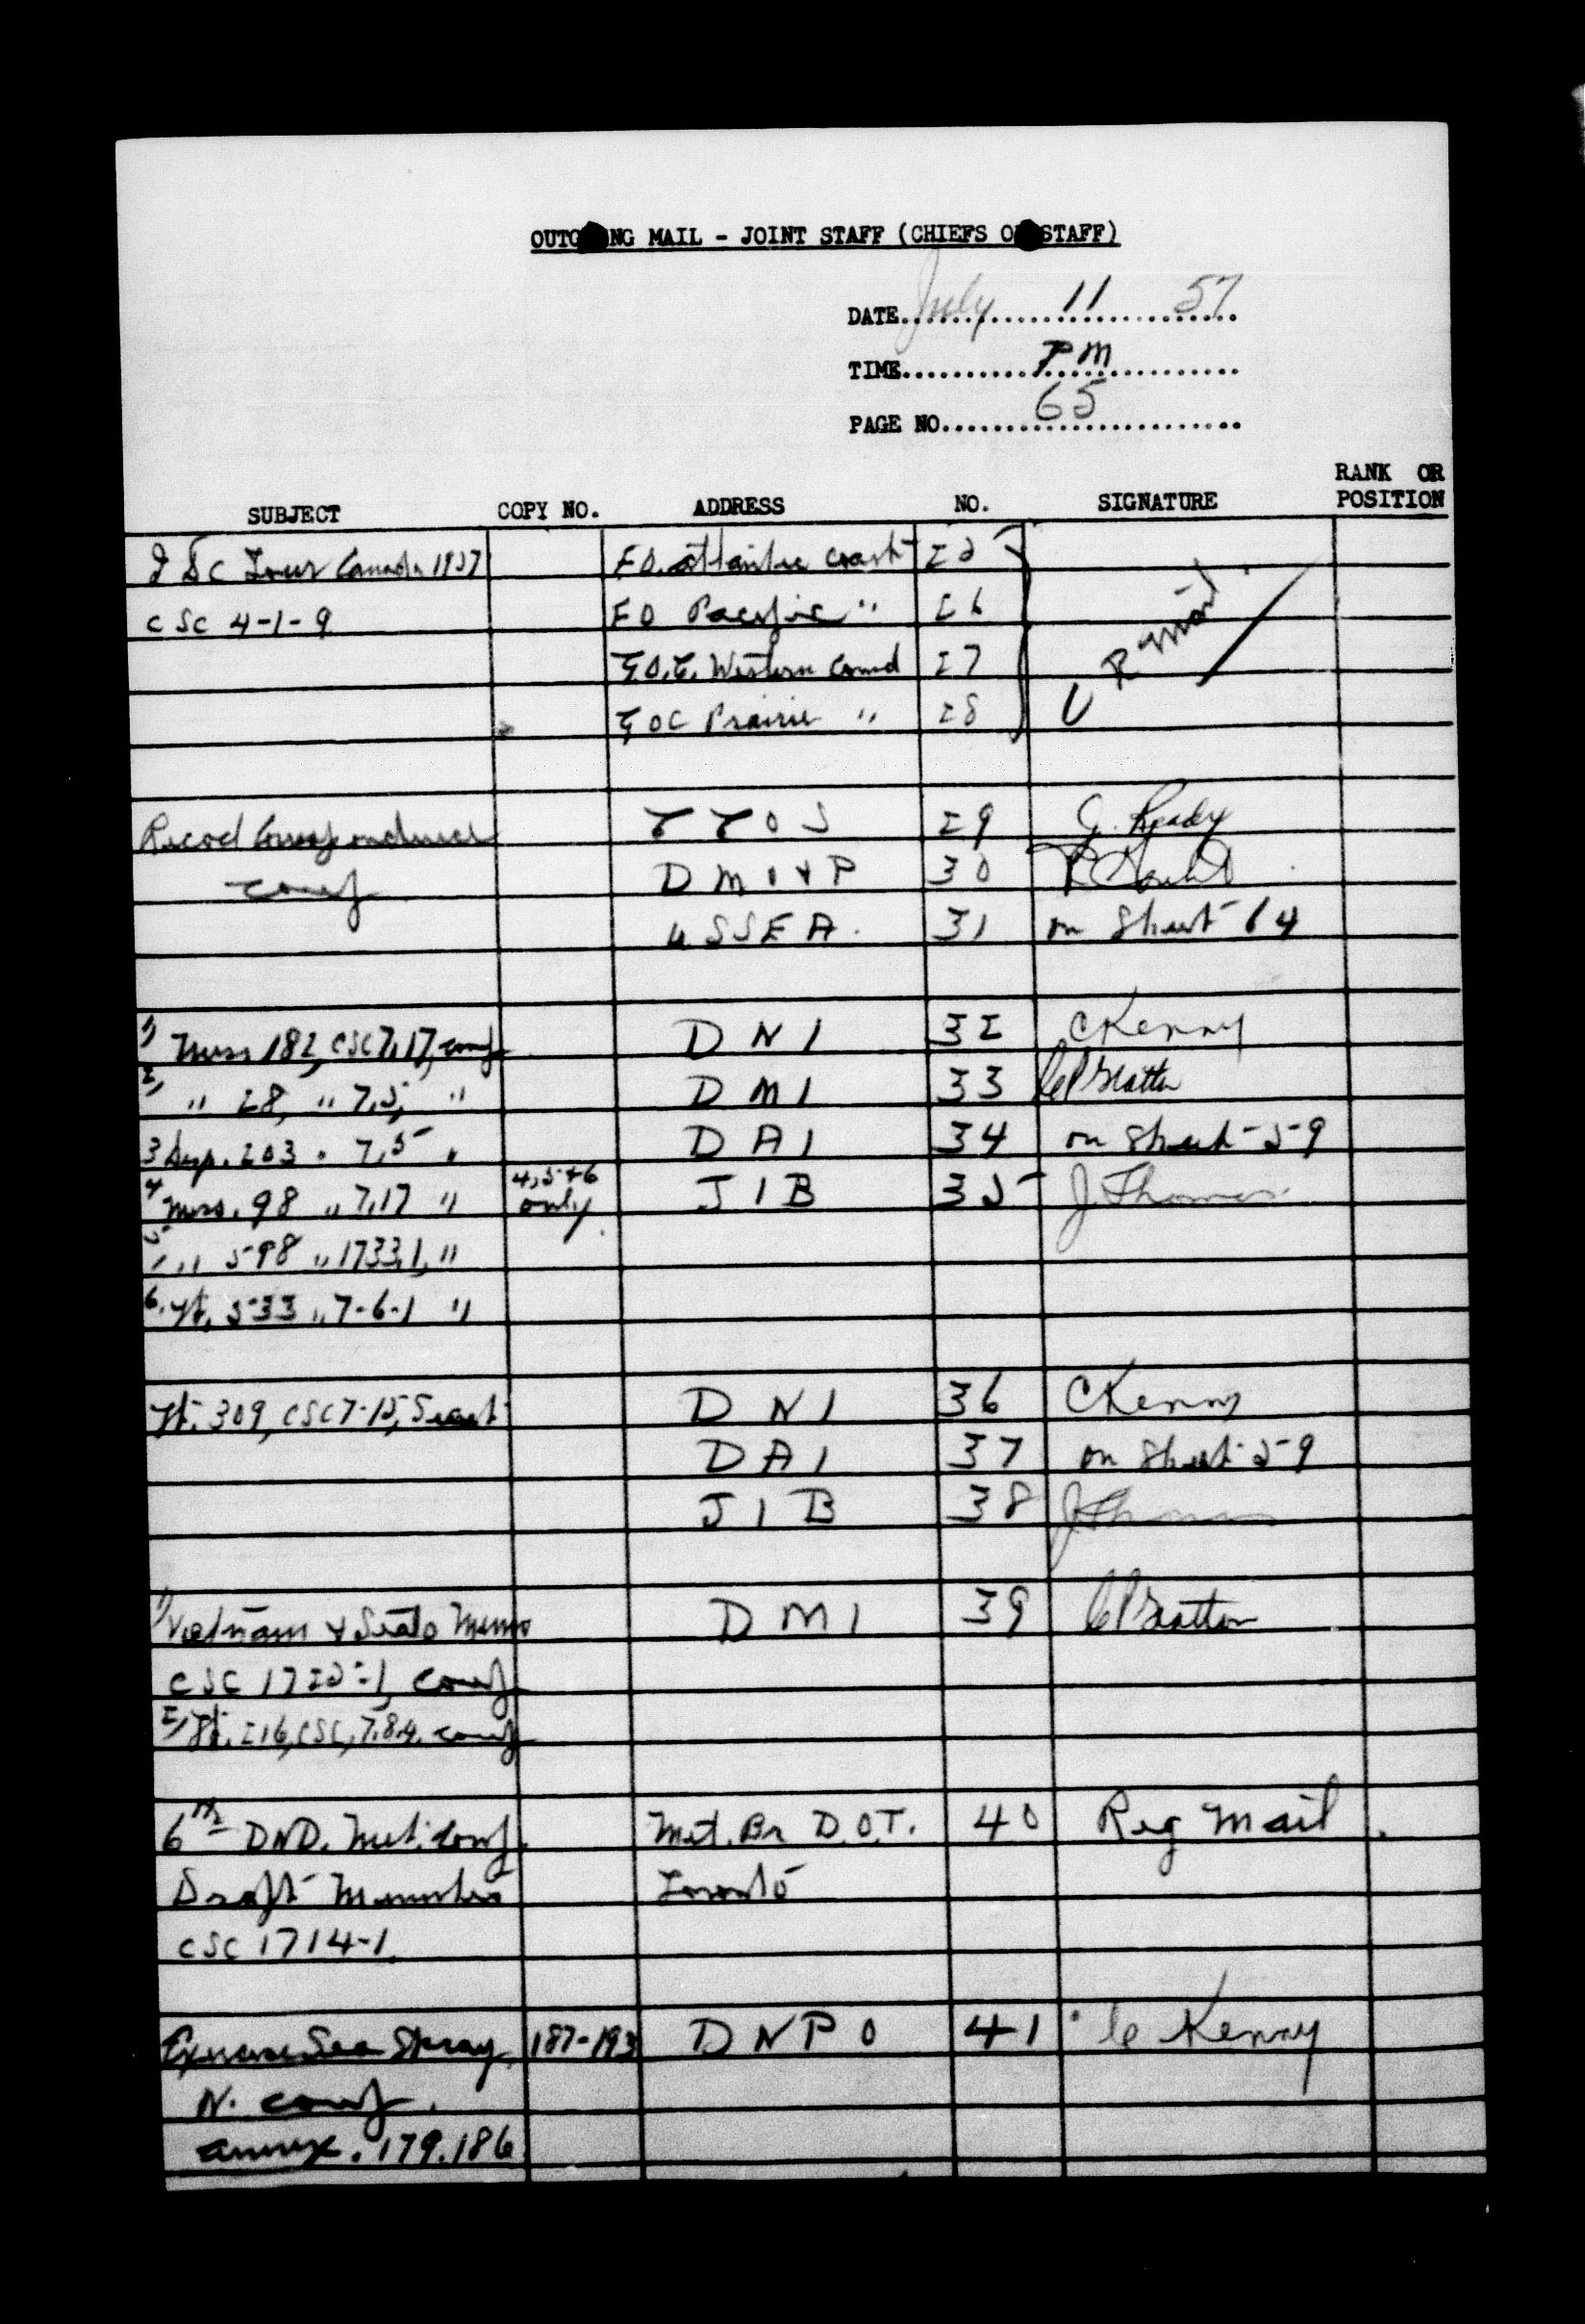 OUTGOING MAIL - JOINT STAFF (CHIEFS OF STAFF)
DATE July 11 57
TIME PM
PAGE NO. 65
SUBJECT COPY NO. ADDRESS NO. SIGNATURE RANK OR POSITION
Tour Canada 1957 F.O. Atlantic Coast 25
CSC 4-1-9 FO Pacific " 26
G.O.C. Western Comd 27
GOC Prairie " 28
Record Correspondence CCOS 29 J. Ready
conf DMO&P 30
USSEA. 31 on Sheet 64
1) Mess 182, CSC 7.17, conf DNI 32 C Kenny
2) " 28, " 7.5, " DMI 33
3 Desp. 203 " 7.5 " DAI 34 on Sheet 59
4 Mess. 98 " 7.17 " 4, 5 & 6 only JIB 35 J Thomas
5 " 598 " 1733.1, "
6. 533 " 7-6-1 "
309, CSC 7-15, Secret DNI 36 C Kenny
DAI 37 on Sheet 59
JIB 38 J Thomas
1) Vietnam & Seato Memo DMI 39
CSC 1725-1, conf
2) 216, CSC, 7.8.4. conf
6th DND. Met. Conf. Met. Br D.O.T. 40 Reg Mail
Draft Minutes Toronto
CSC 1714-1.
Exercise Sea Spray 187-193 DNPO 41 C Kenny
N. conf.
annex. 179.186